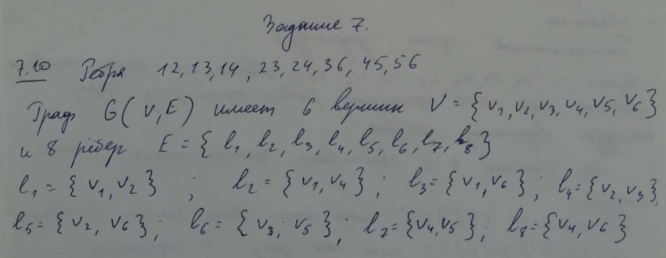 Задание 7.
7.10 Ребра 12, 13, 14, 23, 24, 36, 45, 56
Граф G(V, E) имеет 6 вершин V = {v₁, v₂, v₃, v₄, v₅, v₆}
и 8 рёбер E = {l₁, l₂, l₃, l₄, l₅, l₆, l₇, l₈}
l₁ = {v₁, v₂}; l₂ = {v₁, v₄}; l₃ = {v₁, v₆}; l₄ = {v₂, v₃},
l₅ = {v₂, v₆}; l₆ = {v₃, v₅}; l₇ = {v₄, v₅}; l₈ = {v₄, v₆}